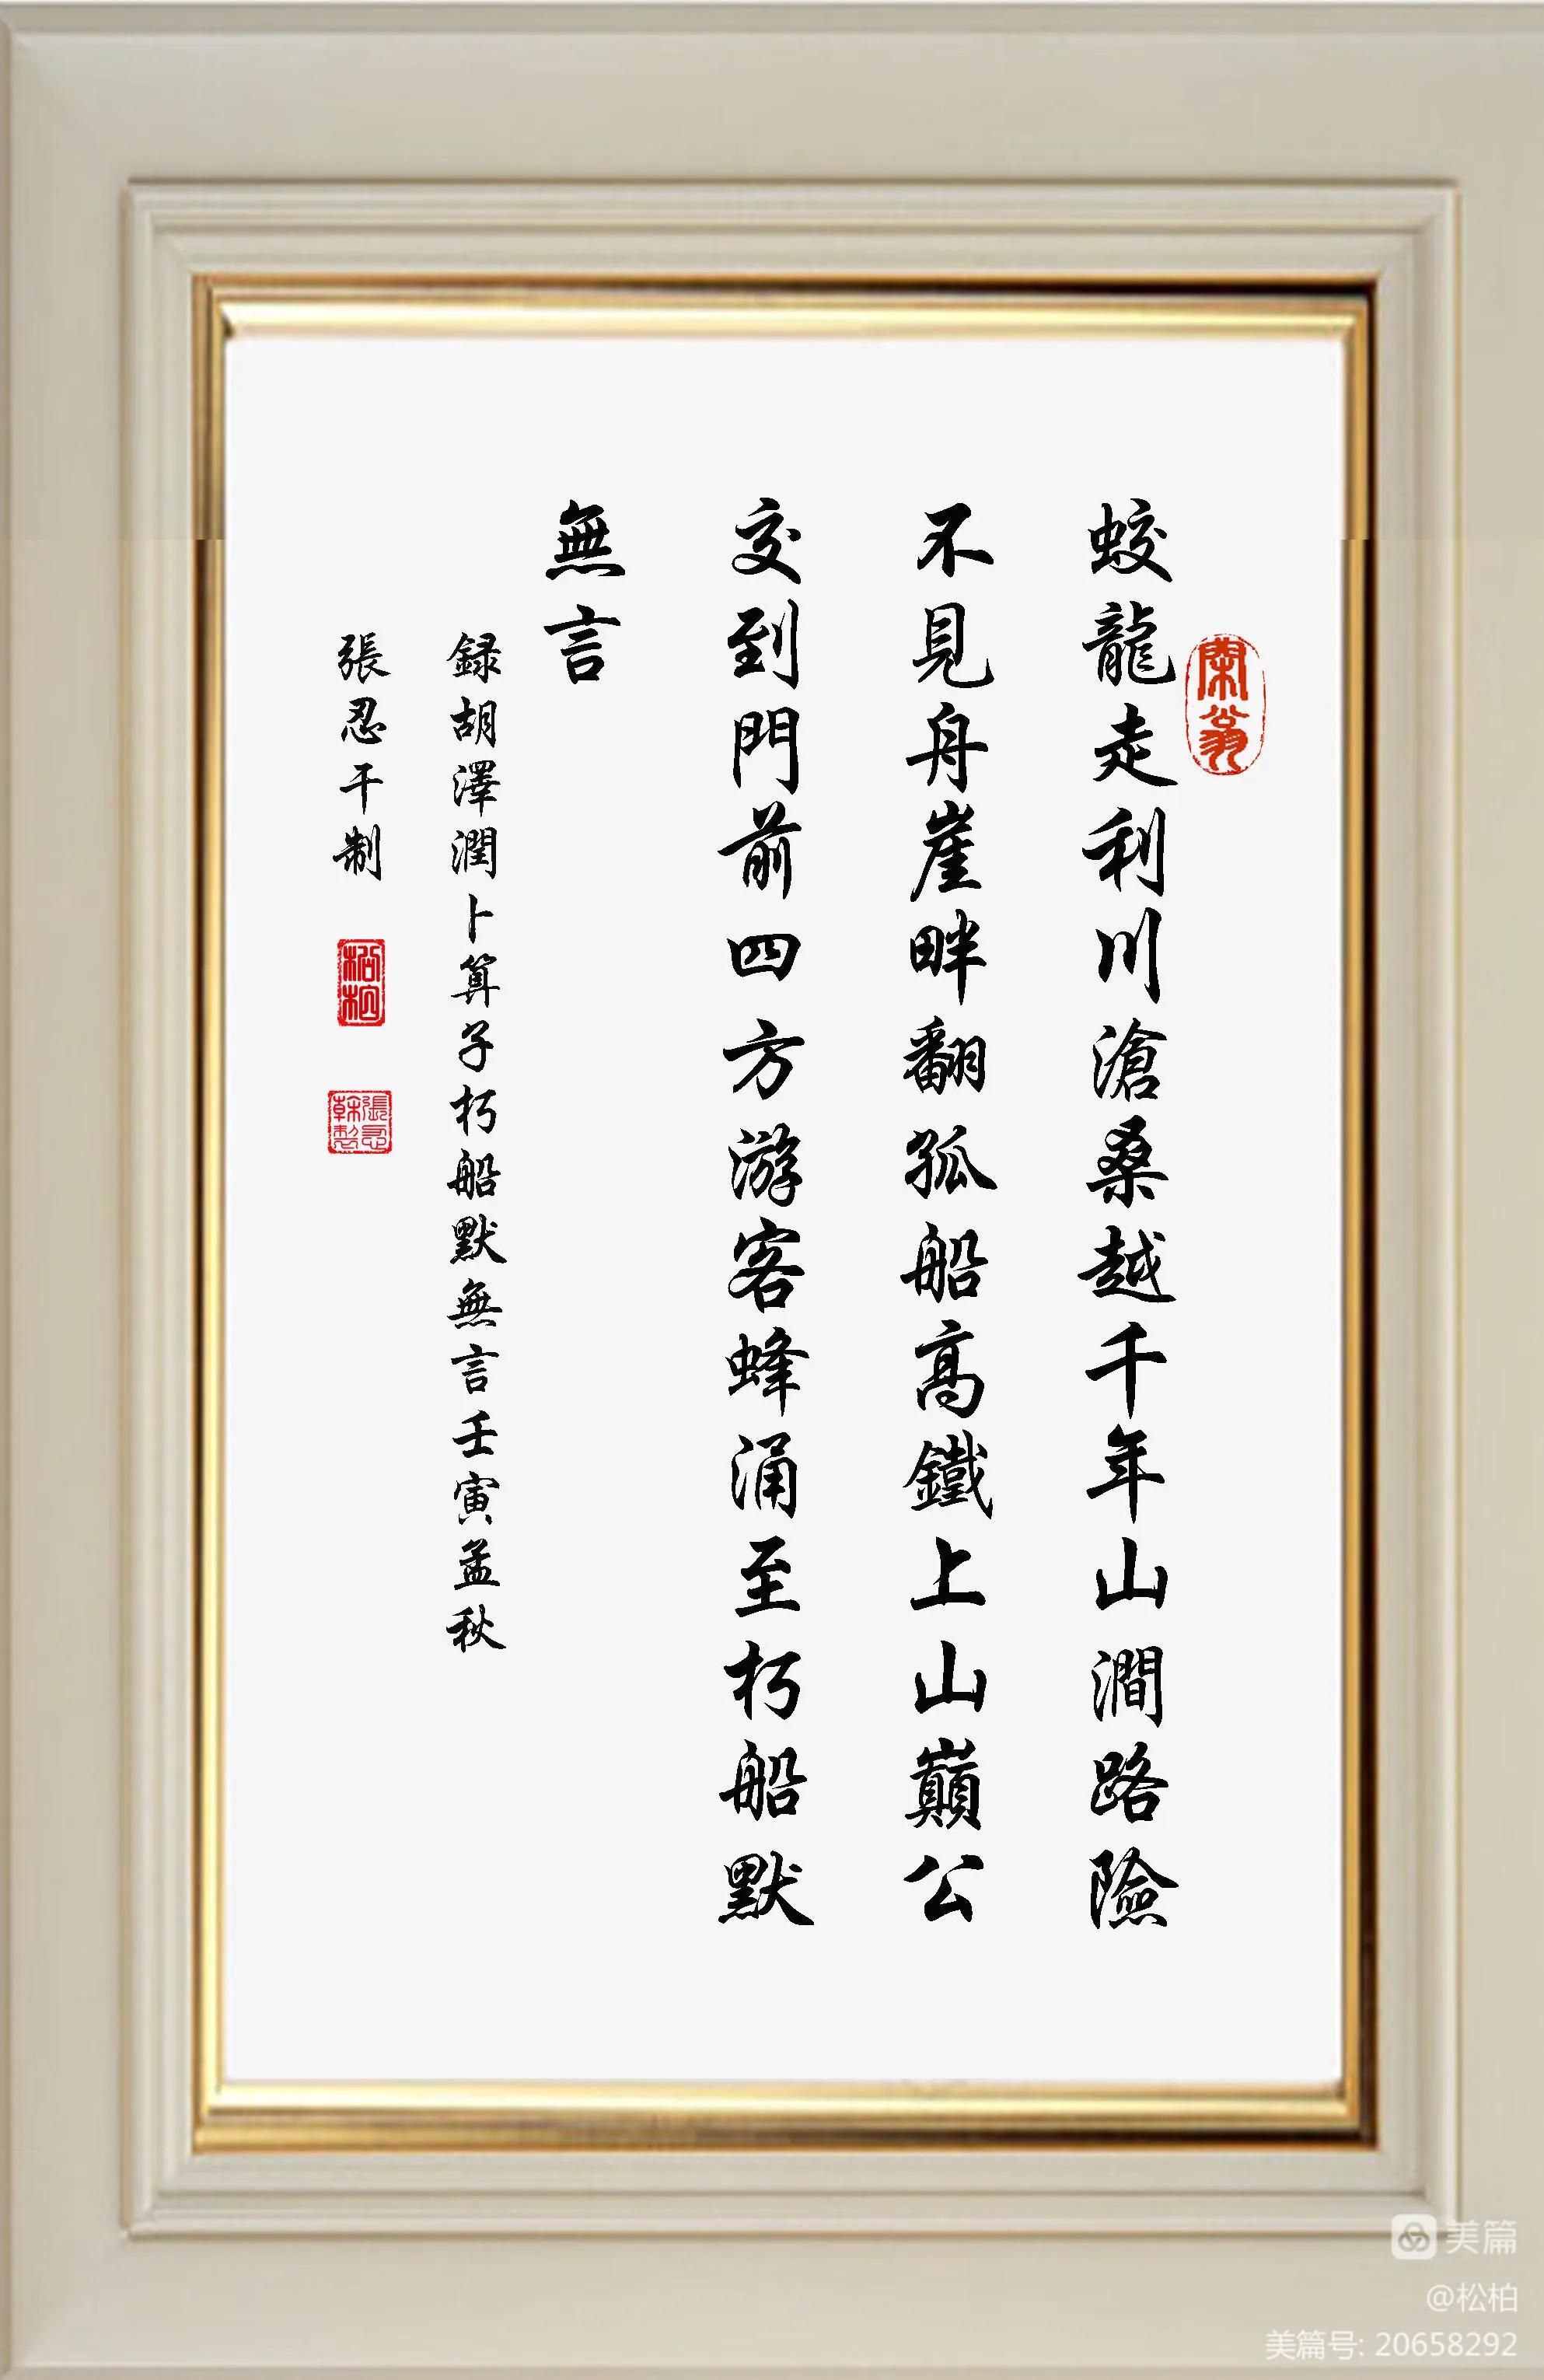 蛟龍走利川滄桑越千年山澗路險
不見舟崖畔翻孤船高鐵上山巔公
交到門前四方游客蜂涌至朽船默
無言
録胡澤潤卜算子朽船默無言壬寅孟秋
張忍干制
松柏
張忍幹製
美篇
@松柏
美篇号: 20658292